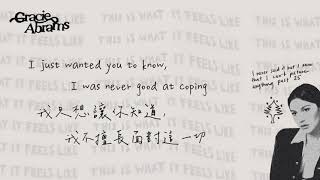 Gracie
Abrams
THIS IS WHAT IT FEELS LIKE
I never said it but I know
that I can't picture
anything past 25
I just wanted you to know,
I was never good at coping
我只想讓你知道,
我不擅長面對這一切